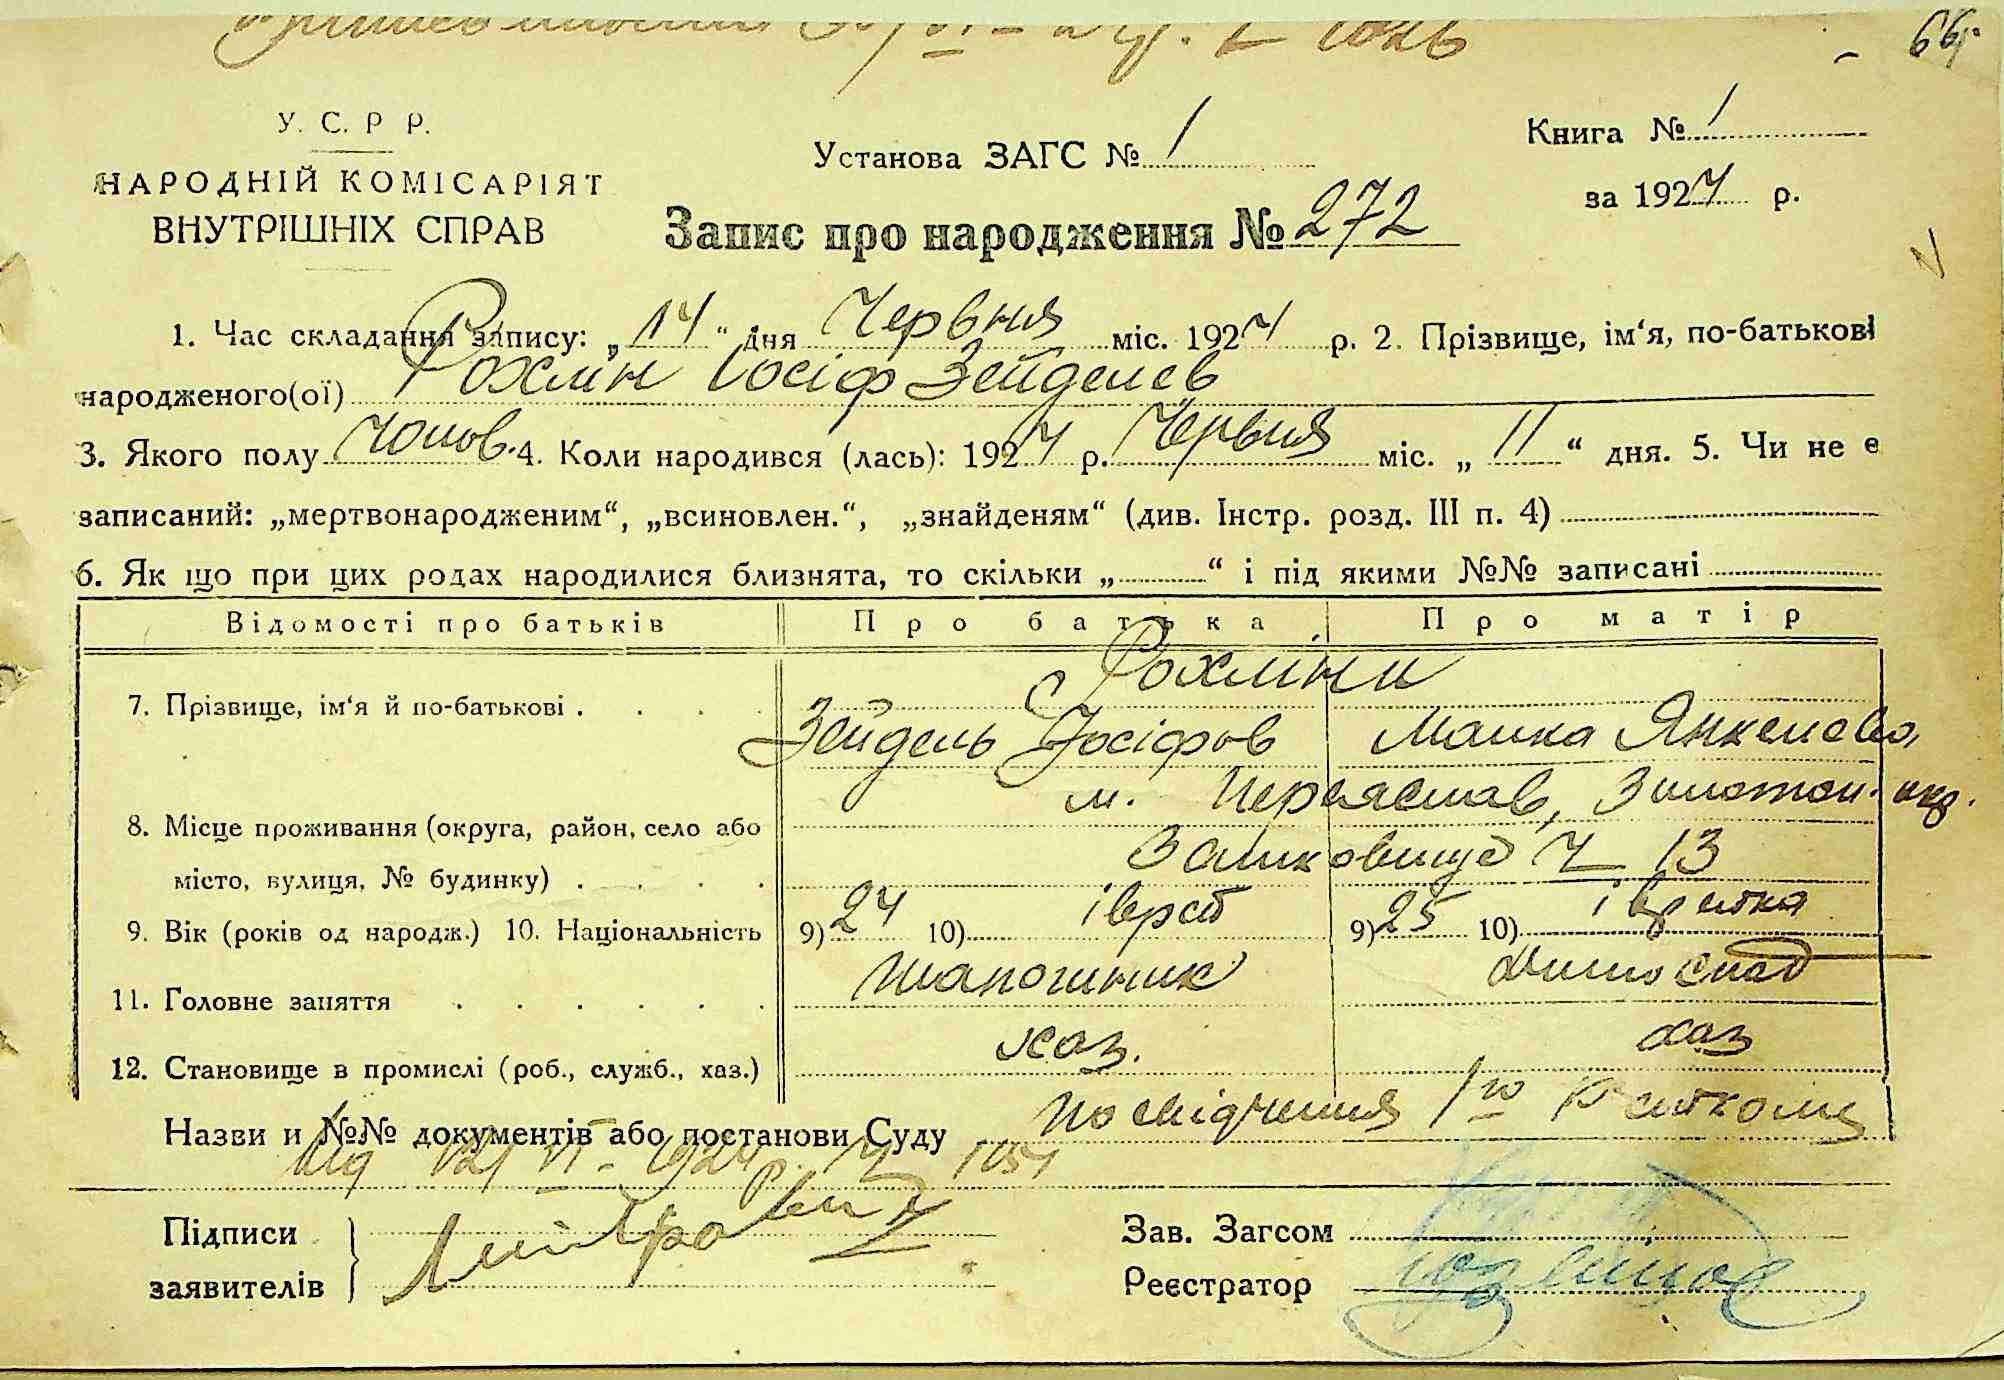 66
У. С. Р Р.
НАРОДНІЙ КОМІСАРІЯТ
ВНУТРІШНІХ СПРАВ
Установа ЗАГС № 1
Книга № 1
за 1924 р.
Запис про народження № 272
1. Час складання запису: „14“ дня Червня міс. 1924 р. 2. Прізвище, ім‘я, по-батькові
народженого(ої) Рохлін Іосіф Зейделев
3. Якого полу чолов. 4. Коли народився (лась): 1924 р. Червня міс. „11“ дня. 5. Чи не є
записаний: „мертвонародженим“, „всиновлен.“, „знайденям“ (див. Інстр. розд. III п. 4)
6. Як що при цих родах народилися близнята, то скільки „ “ і під якими №№ записані
Відомості про батьків Про батька Про матір
Рохліни
7. Прізвище, ім‘я й по-батькові . . . . Зейдель Іосіфов Малка Янкелева
м. Переяслав, Золотон. окр.
8. Місце проживання (округа, район, село або
Замковище 13
місто, вулиця, № будинку) . . . .
9. Вік (років од народж.) 10. Національність 9) 24 10) іврей 9) 25 10) іврейка
11. Головне заняття . . . . . . Шапошник
12. Становище в промислі (роб., служб., хаз.) хаз. хаз
Назви и №№ документів або постанови Суду посвідчення 1го
Від VI 1924 р.
Підписи
заявителів
Зав. Загсом
Реєстратор